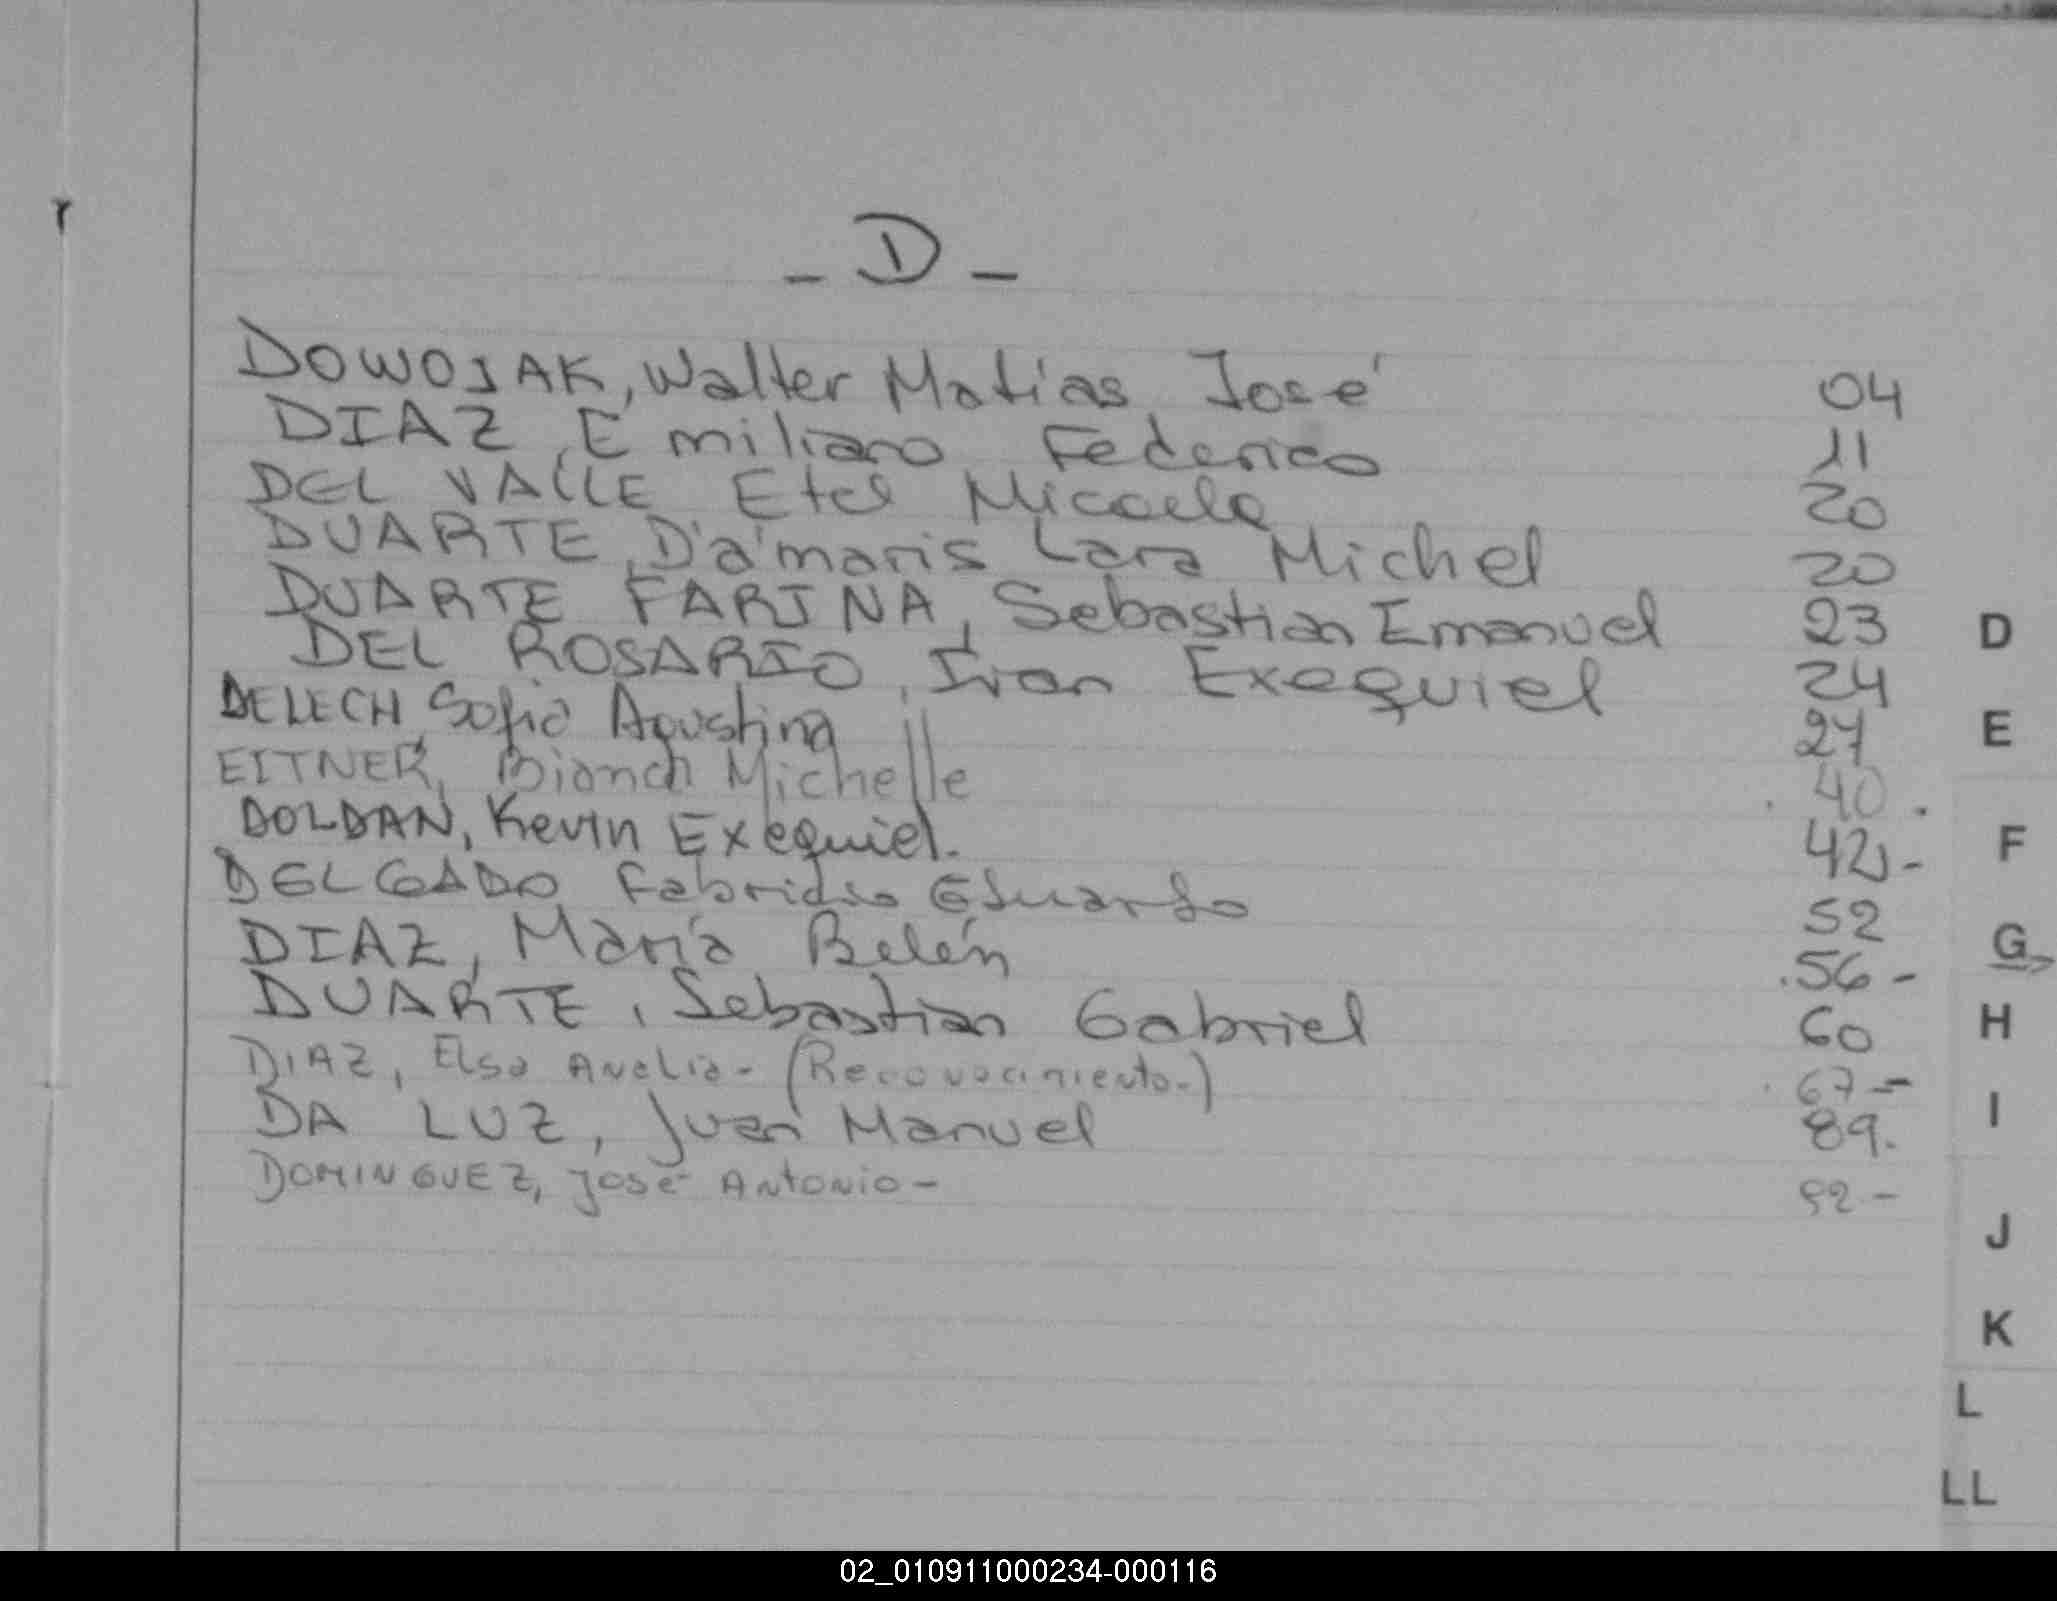 - D -
DOWOJAK, Walter Matias José 04
DIAZ, Emiliano Federico 11
DEL VALLE Etel Micaela 20
DUARTE, Dámaris Lara Michel 20
DUARTE FARINA, Sebastian Emanuel 23
DEL ROSARIO, Ivan Exequiel 24
DELECH, Sofia Agustina 27
EITNER, Bianca Michelle 40.
DOLDAN, Kevin Exequiel. 42-
DELGADO Fabricio Eduardo 52
DIAZ, María Belén 56-
DUARTE, Sebastian Gabriel 60
DIAZ, Elsa Analia- (Reconocimiento-) 67-
DA LUZ, Juan Manuel 89.
DOMINGUEZ, José Antonio- 92-
D
E
F
G
H
I
J
K
L
LL
02_010911000234-000116